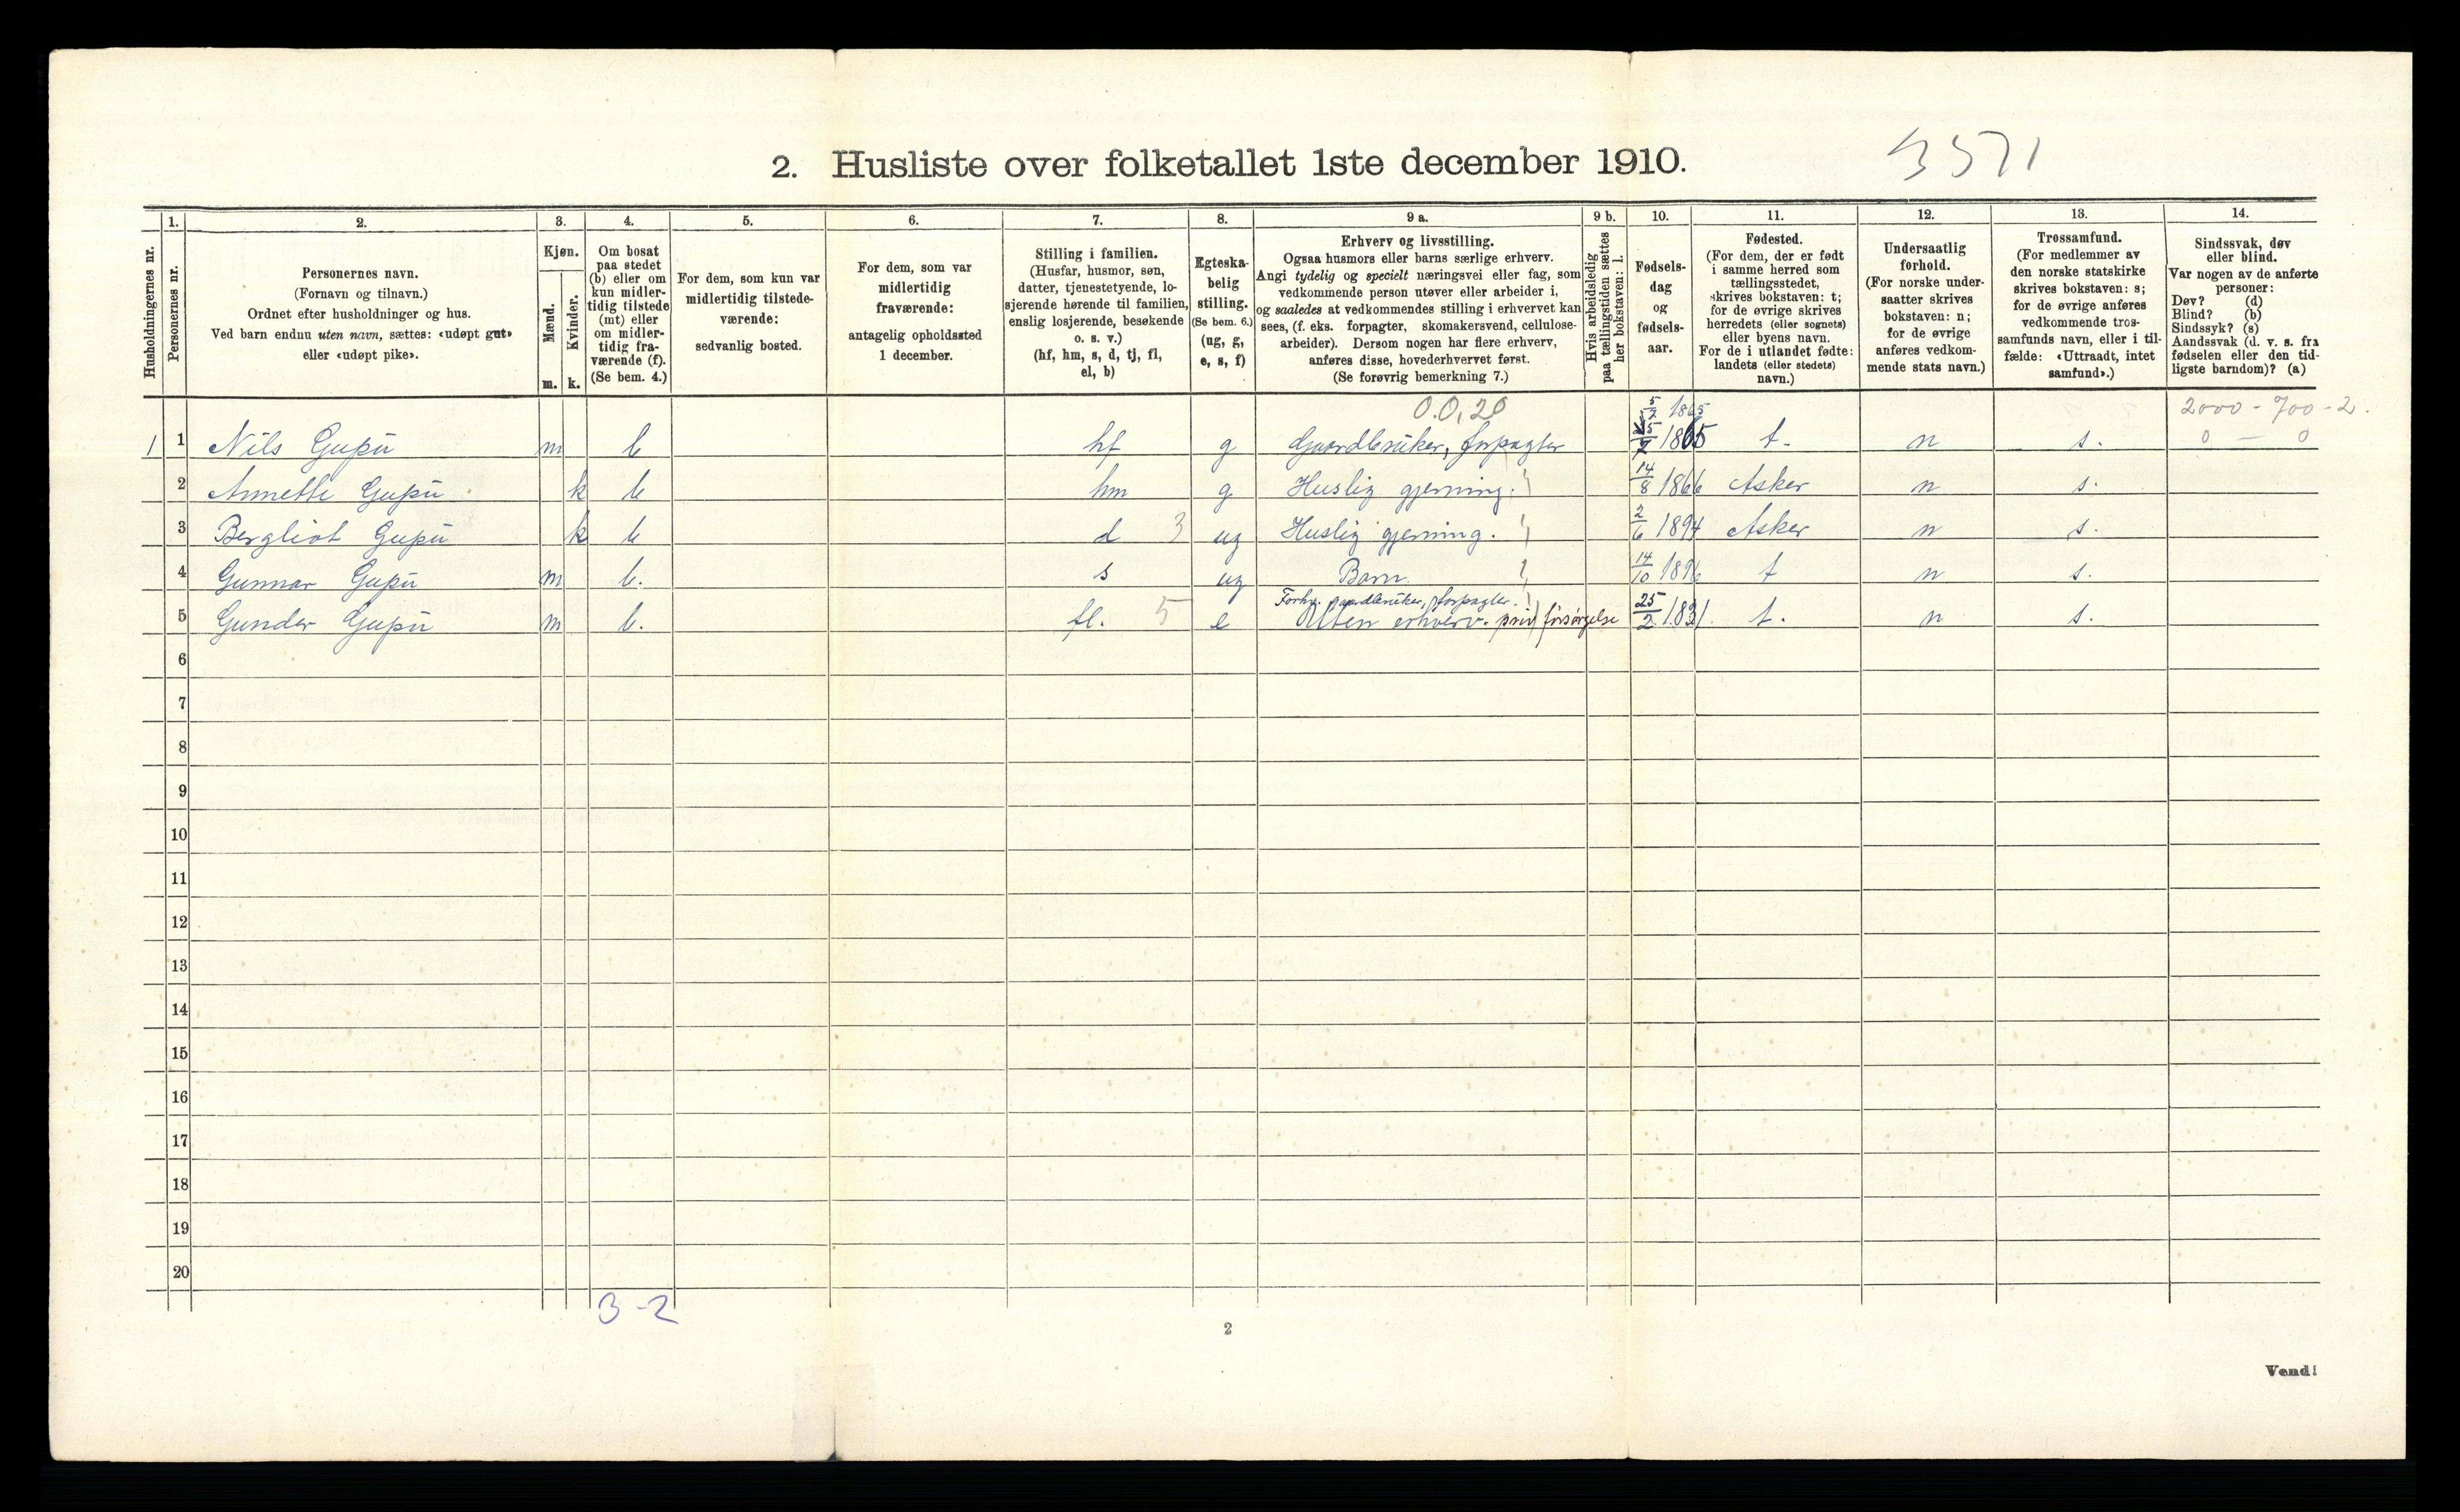 2. Husliste over folketallet 1ste december 1910.
3571
Husholdningernes nr.
1.
Personernes nr.
2.
Personernes navn.
(Fornavn og tilnavn.)
Ordnet efter husholdninger og hus.
Ved barn endnu uten navn, sættes: «udøpt gut»
eller «udøpt pike».
3.
Kjøn.
Mænd.
Kvinder.
m. k.
4.
Om bosat
paa stedet
(b) eller om
kun midler-
tidig tilstede
(mt) eller
om midler-
tidig fra-
værende (f).
(Se bem. 4.)
5.
For dem, som kun var
midlertidig tilstede-
værende:
sedvanlig bosted.
6.
For dem, som var
midlertidig
fraværende:
antagelig opholdssted
1 december.
7.
Stilling i familien.
(Husfar, husmor, søn,
datter, tjenestetyende, lo-
sjerende hørende til familien,
enslig losjerende, besøkende
o. s. v.)
(hf, hm, s, d, tj, fl,
el, b)
8.
Egteska-
belig
stilling.
(Se bem. 6.)
(ug, g,
e, s, f)
9 a.
Erhverv og livsstilling.
Ogsaa husmors eller barns særlige erhverv.
Angi tydelig og specielt næringsvei eller fag, som
vedkommende person utøver eller arbeider i,
og saaledes at vedkommendes stilling i erhvervet kan
sees, (f. eks. forpagter, skomakersvend, cellulose-
arbeider). Dersom nogen har flere erhverv,
anføres disse, hovederhvervet først.
(Se forøvrig bemerkning 7.)
9 b.
Hvis arbeidsledig
paa tællingstiden sættes
her bokstaven: l.
10.
Fødsels-
dag
og
fødsels-
aar.
11.
Fødested.
(For dem, der er født
i samme herred som
tællingsstedet,
skrives bokstaven: t;
for de øvrige skrives
herredets (eller sognets)
eller byens navn.
For de i utlandet fødte:
landets (eller stedets)
navn.)
12.
Undersaatlig
forhold.
(For norske under-
saatter skrives
bokstaven: n;
for de øvrige
anføres vedkom-
mende stats navn.)
13.
Trossamfund.
(For medlemmer av
den norske statskirke
skrives bokstaven: s;
for de øvrige anføres
vedkommende tros-
samfunds navn, eller i til-
fælde: «Uttraadt, intet
samfund».)
14.
Sindssvak, døv
eller blind.
Var nogen av de anførte
personer:
Døv? (d)
Blind? (b)
Sindssyk? (s)
Aandssvak (d. v. s. fra
fødselen eller den tid-
ligste barndom)? (a)
0.0,20 5/7 1865 2000 - 700 - 2.
1 1 Nils Gupu m b hf g Gaardbruker, forpagter 1865 t. n s. 0 — 0
2 Annette Gupu k b hm g Huslig gjerning. 14/8 1866 Asker n s.
3 Bergliot Gupu k b d 3 ug Huslig gjerning. 2/6 1894 Asker n s.
4 Gunnar Gupu m b. s ug Barn 14/10 1896 t n s.
Forhv. gaardbruker, forpagter.
5 Gunder Gupu m b. fl. 5 e Uten erhverv. priv forsørgelse 25/2 1831. t. n s.
6
7
8
9
10
11
12
13
14
15
16
17
18
19
20
3 - 2
2
Vend!